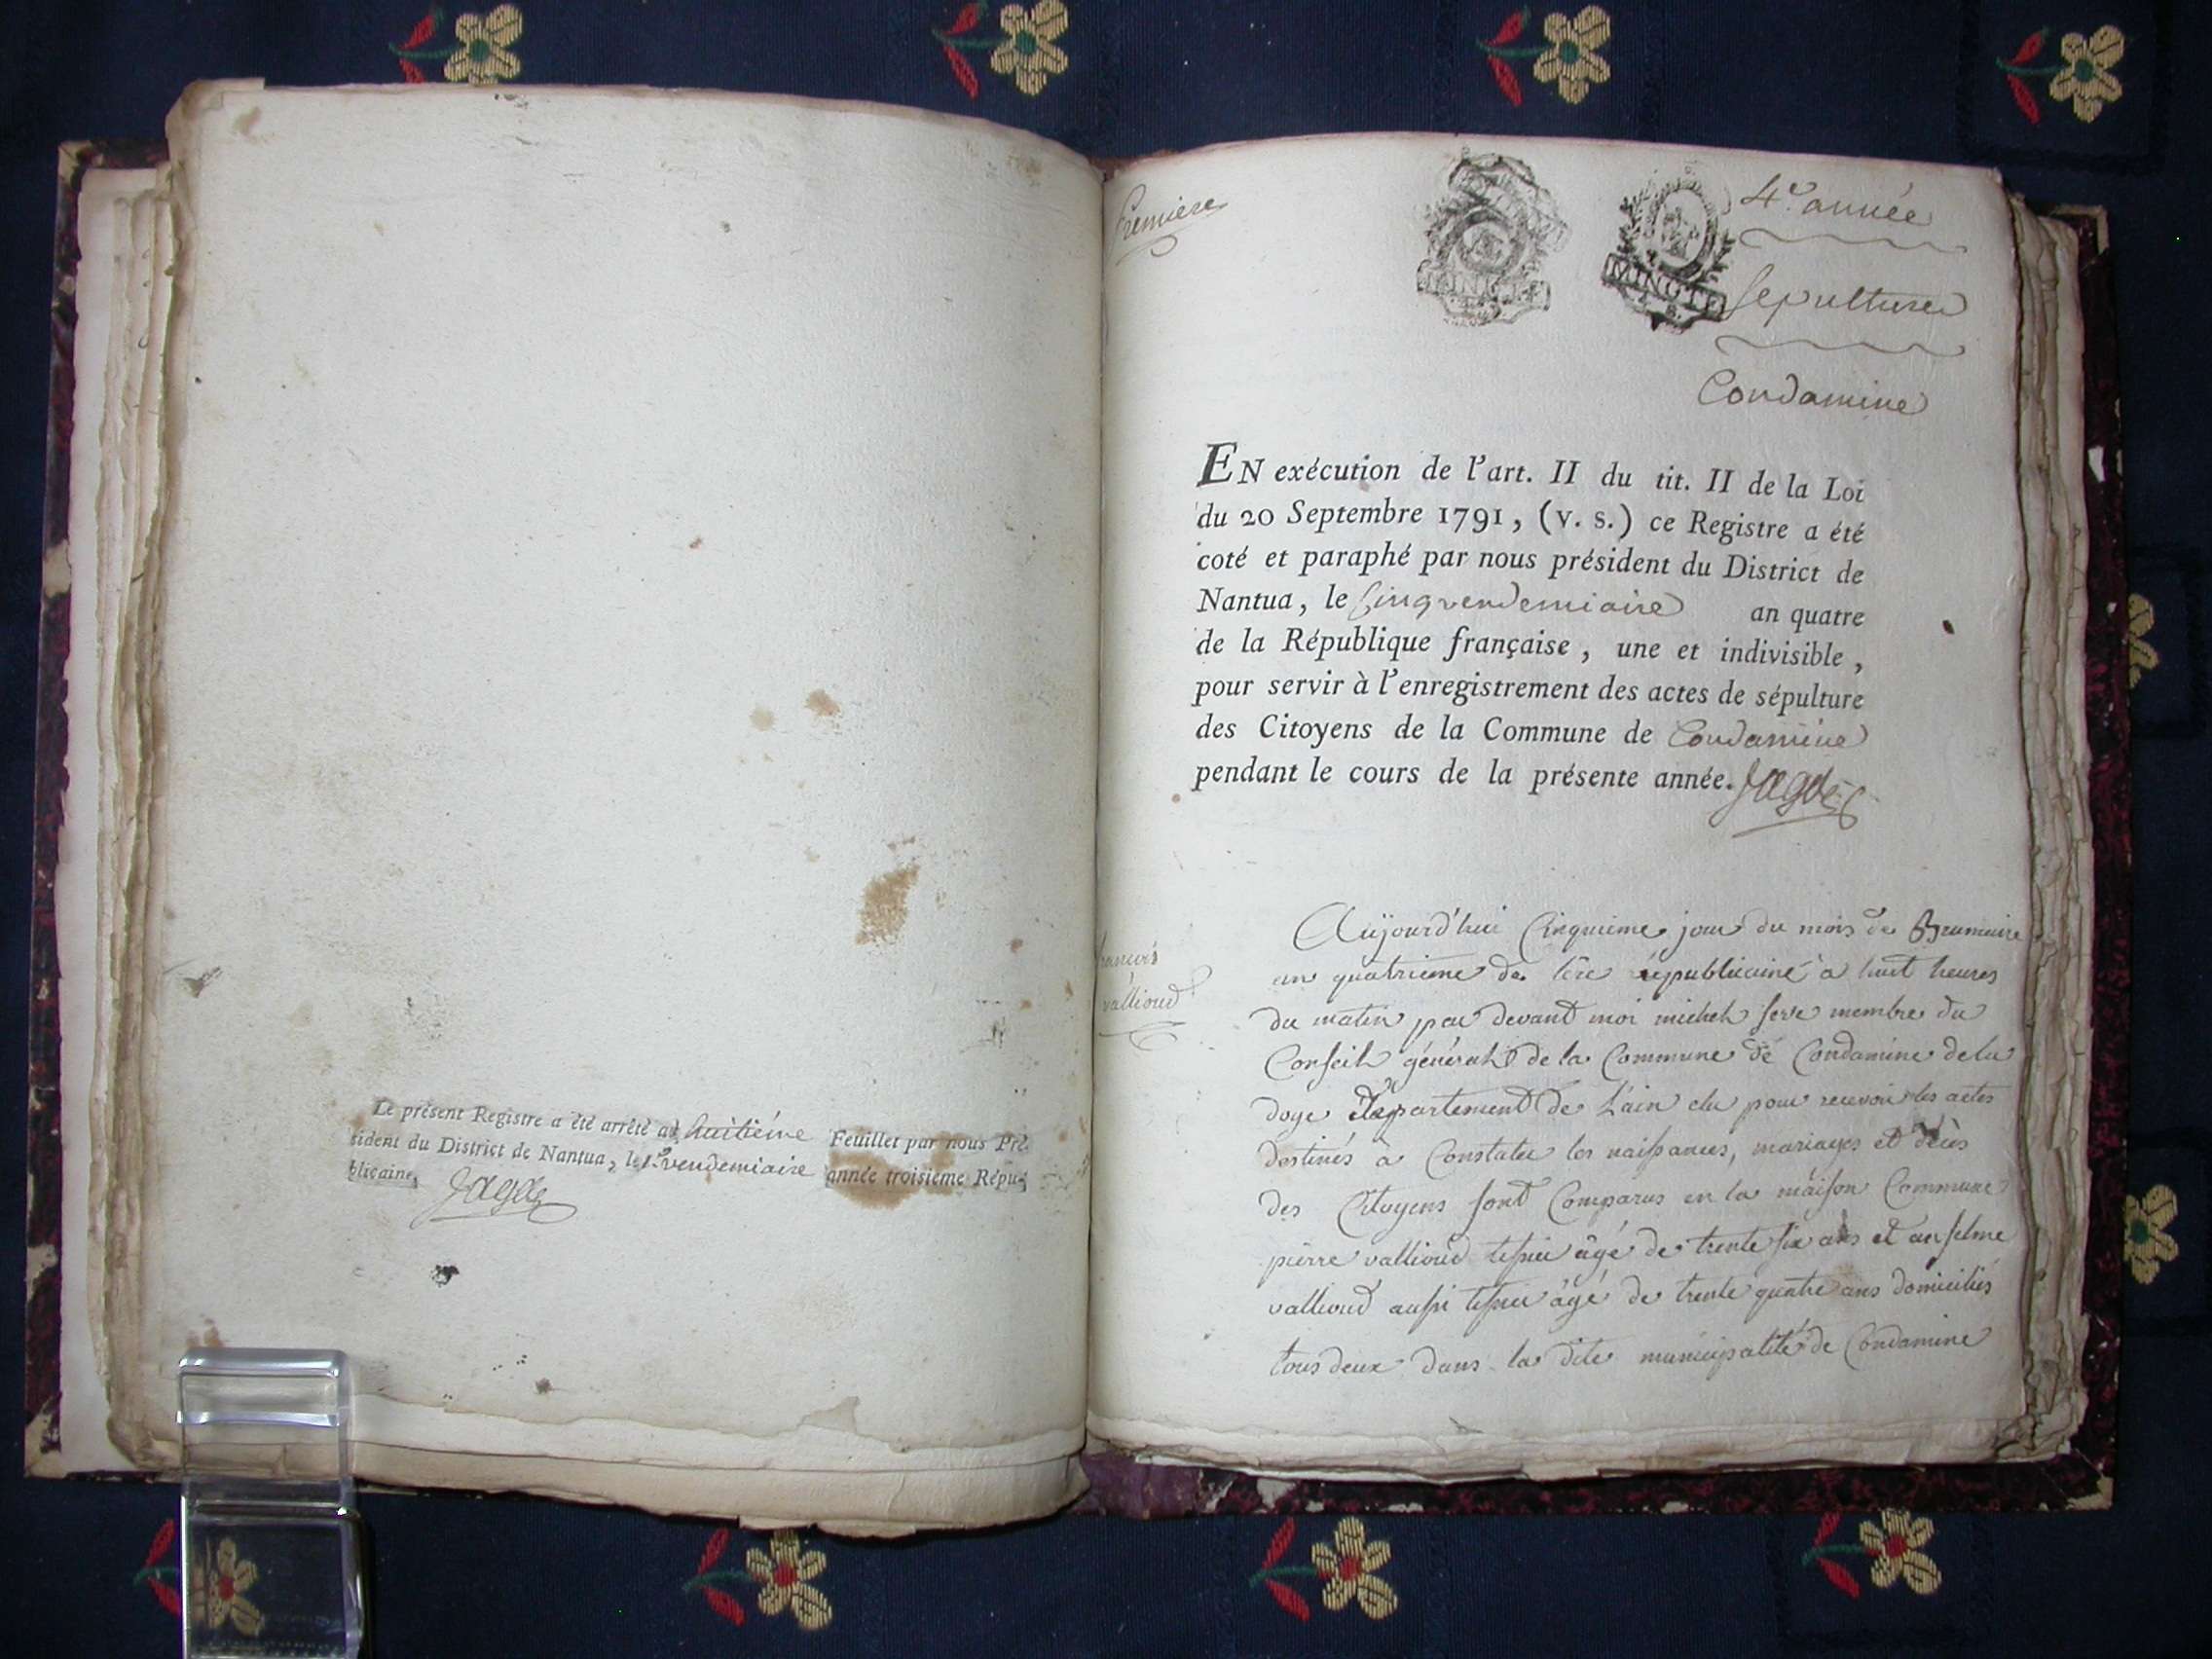 Le présent Registre a été arrêté au huitième Feuillet par nous Pré-
sident du District de Nantua, le 1er vendemiaire année troisieme Répu-
blicaine,
Jagot
Premiere
4e. année
Sepulture
Condamine
EN exécution de l'art. II du tit. II de la Loi
du 20 Septembre 1791, (v. s.) ce Registre a été
coté et paraphé par nous président du District de
Nantua, le Cinq vendemiaire an quatre
de la République française, une et indivisible,
pour servir à l'enregistrement des actes de sépulture
des Citoyens de la Commune de Condamine
pendant le cours de la présente année.
françois
vallioud
Aujourd'hui Cinquieme jour du mois de Brumaire
an quatrieme de l'ére republicaine à huit heures
du matin par devant moi michel serve membre du
Conseil général de la Commune de Condamine de la
doye département de L'ain elu pour recevoir les actes
destinés à Constater les naissances, mariages et décès
des Citoyens sont Comparus en la maison Commune
pierre vallioud tissier âgé de trente six ans et anselme
vallioud aussi tissier âgé de trente quatre ans domiciliés
tous deux dans la dite municipalité de Condamine